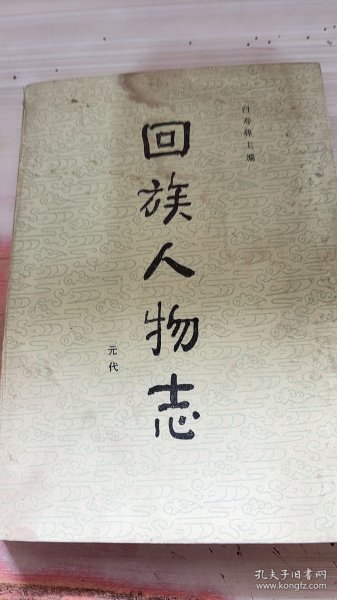 白寿彝主编
回族人物志
元代
孔夫子旧书网
www.kongfz.com